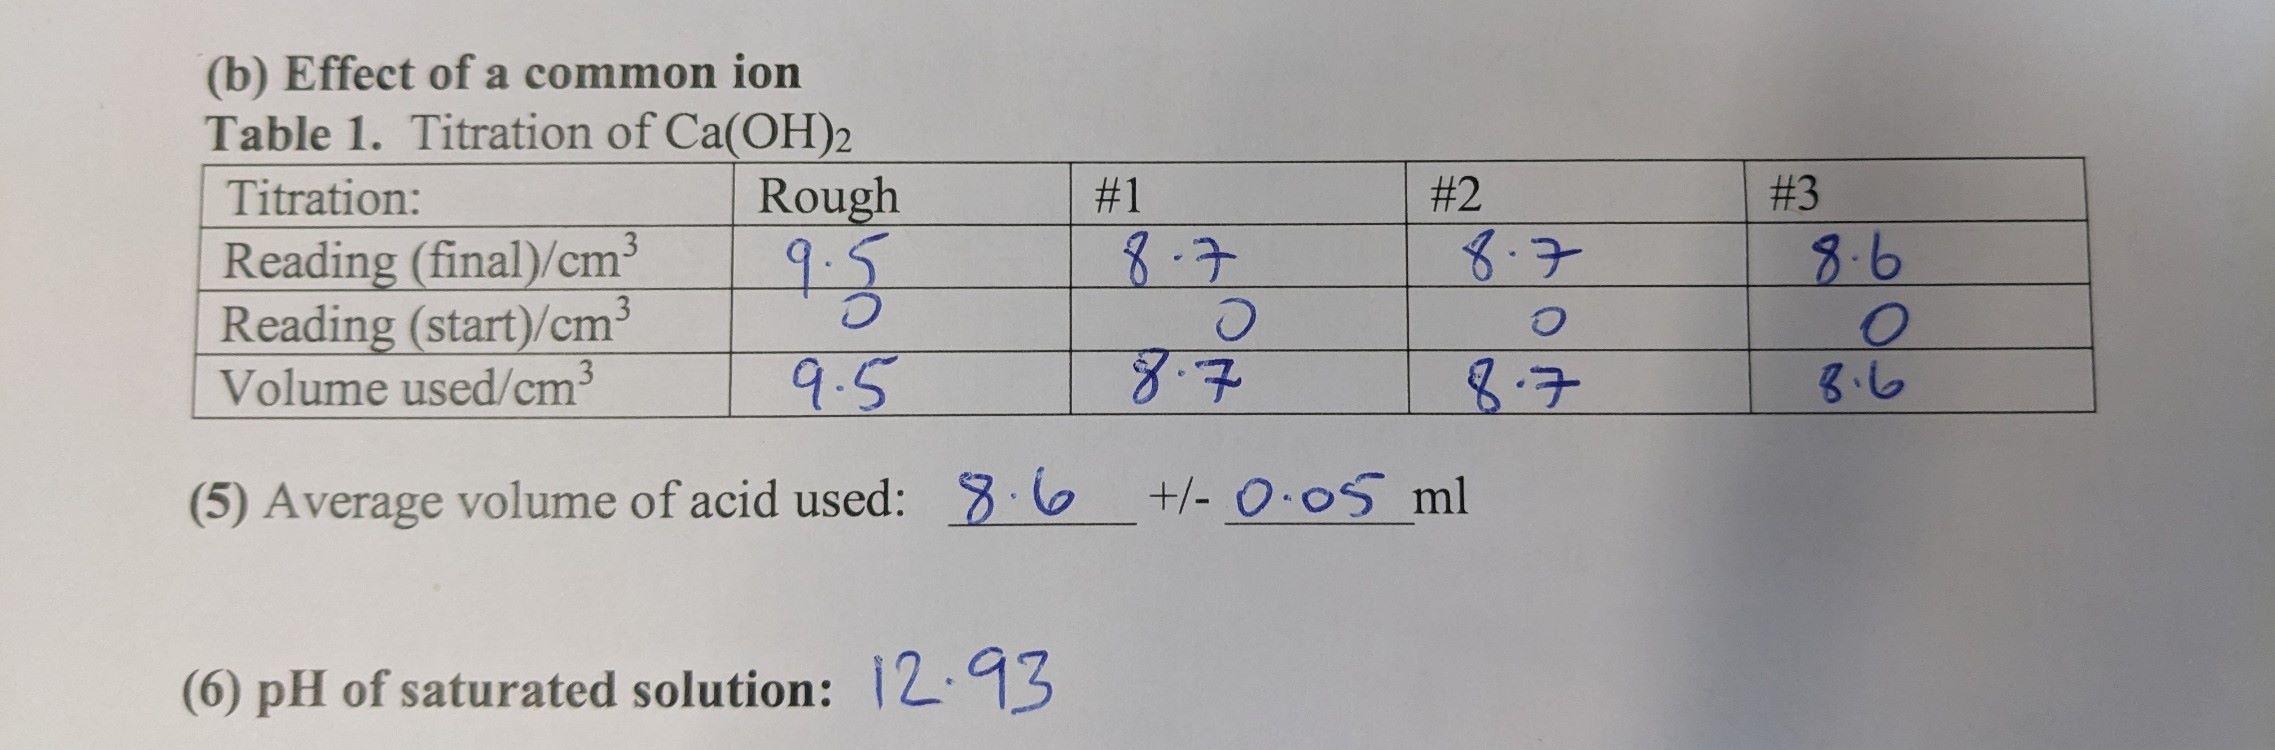 (b) Effect of a common ion
Table 1. Titration of Ca(OH)2
Titration: Rough #1 #2 #3
Reading (final)/cm³ 9.5 8.7 8.7 8.6
Reading (start)/cm³ 0 0 0 0
Volume used/cm³ 9.5 8.7 8.7 8.6
(5) Average volume of acid used: 8.6 +/- 0.05 ml
(6) pH of saturated solution: 12.93